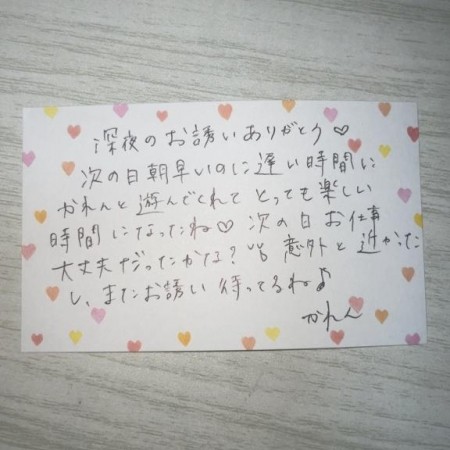 深夜のお誘いありがとう♡
次の日朝早いのに遅い時間に
かれんと遊んでくれて とっても楽しい
時間になったね♡ 次の日お仕事
大丈夫だったかな? 意外と近かった
し、またお誘い待ってるね♪
かれん